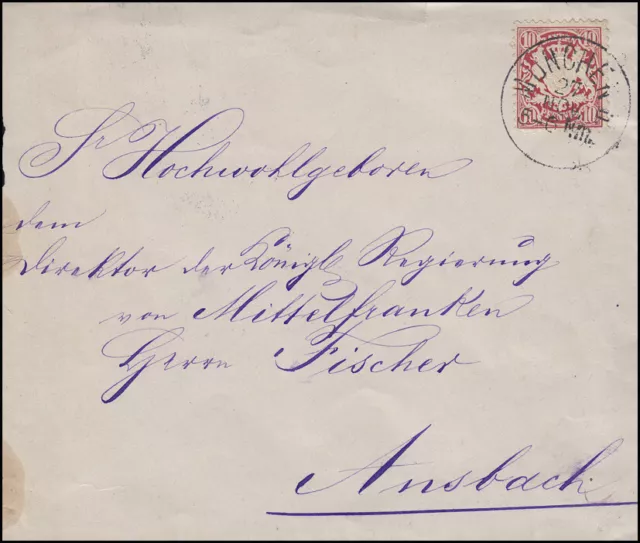 10 10
MÜNCHEN II
10 10
Sr Hochwohlgeboren
dem
Direktor der Königl Regierung
von Mittelfranken
Herrn Fischer
Ansbach